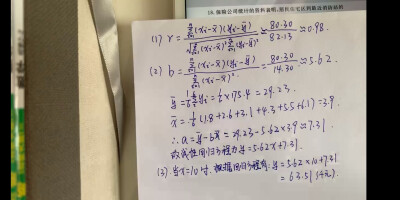 18.保险公司统计的资料表明,居民住宅区到最近消防站的
(1) r = \frac{\sum_{i=1}^{6}(x_i-\bar{x})(y_i-\bar{y})}{\sqrt{\sum_{i=1}^{6}(x_i-\bar{x})^2\sum_{i=1}^{6}(y_i-\bar{y})^2}} ≈ \frac{80.30}{82.13} ≈ 0.98.
(2) b = \frac{\sum_{i=1}^{6}(x_i-\bar{x})(y_i-\bar{y})}{\sum_{i=1}^{6}(x_i-\bar{x})^2} = \frac{80.30}{14.30} ≈ 5.62.
\bar{y} = \frac{1}{6}\sum_{i=1}^{6}y_i = \frac{1}{6}×175.4 = 29.23.
\bar{x} = \frac{1}{6}(1.8+2.6+3.1+4.3+5.5+6.1) = 3.9.
∴ a = \bar{y}-b\bar{x} = 29.23-5.62×3.9 ≈ 7.31.
故线性回归方程为 y=5.62x+7.31.
(3). 当x=10时. 根据回归方程有: y=5.62×10+7.31
= 63.51(千元).